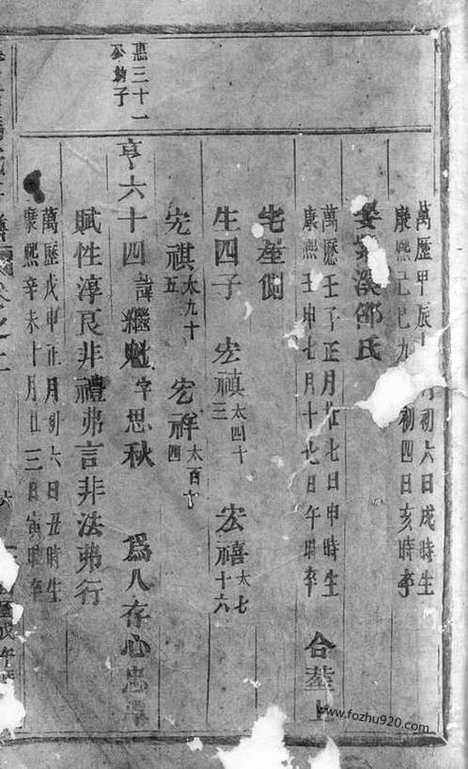 萬歷甲辰 月初六日戌時生
康熙己巳九 初四日亥時卒
娶 溪邵氏
萬歷壬子正月廿七日申時生
康熙壬申七月十七日午時卒
合塟
宅塋側
生四子 宏禎太四十三 宏禧太七十六
宏祺太九十五 宏祥太百十四
惠三十一
公 子
亨六十四諱繼魁字思秋 為人存心忠
賦性淳良非禮弗言非法弗行
萬歷戊申正月初六日丑時生
康熙辛未十月廿三日寅時卒
www.fozhu920.com